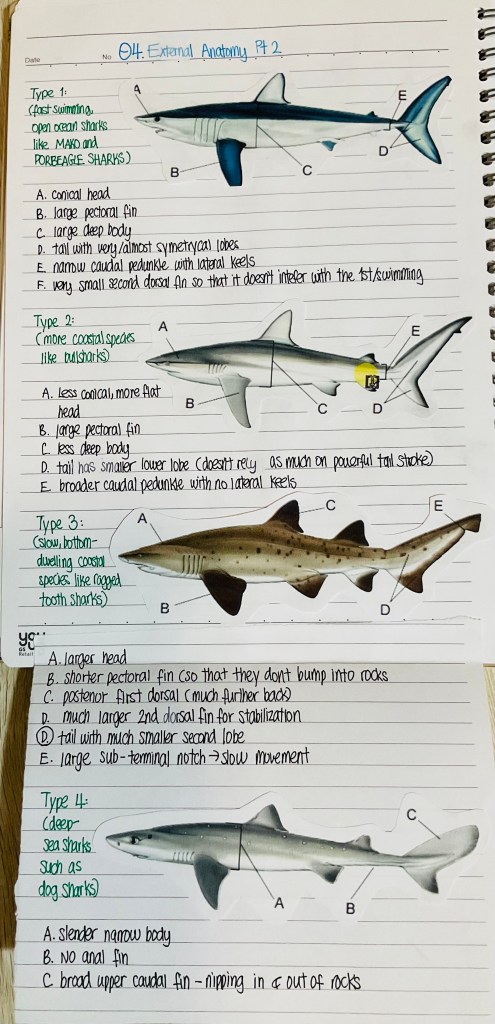 Date
No. 04. External Anatomy Pt 2
Type 1:
(fast swimming,
open ocean sharks
like MAKO and
PORBEAGLE SHARKS)
A
B
C
D
E
A. conical head
B. large pectoral fin
C. large deep body
D. tail with very/almost symetrycal lobes
E. narrow caudal pedunkle with lateral keels
F. very small second dorsal fin so that it doesn't intefer with the 1st/swimming
Type 2:
(more coastal species
like bullsharks)
A
B
C
D
E
A. less conical, more flat
head
B. large pectoral fin
C. less deep body
D. tail has smaller lower lobe (doesn't rely as much on powerful tail stroke)
E. broader caudal pedunkle with no lateral keels
Type 3:
(slow, bottom-
dwelling coastal
species like ragged
tooth sharks)
A
B
C
D
E
you
GS
Retail
A. larger head
B. shorter pectoral fin (so that they dont bump into rocks
C. posterior first dorsal (much further back)
D. much larger 2nd dorsal fin for stabilization
D tail with much smaller second lobe
E. large sub-terminal notch → slow movement
Type 4:
(deep-
sea sharks
such as
dog sharks)
A
B
C
A. slender narrow body
B. NO anal fin
C. broad upper caudal fin - nipping in & out of rocks